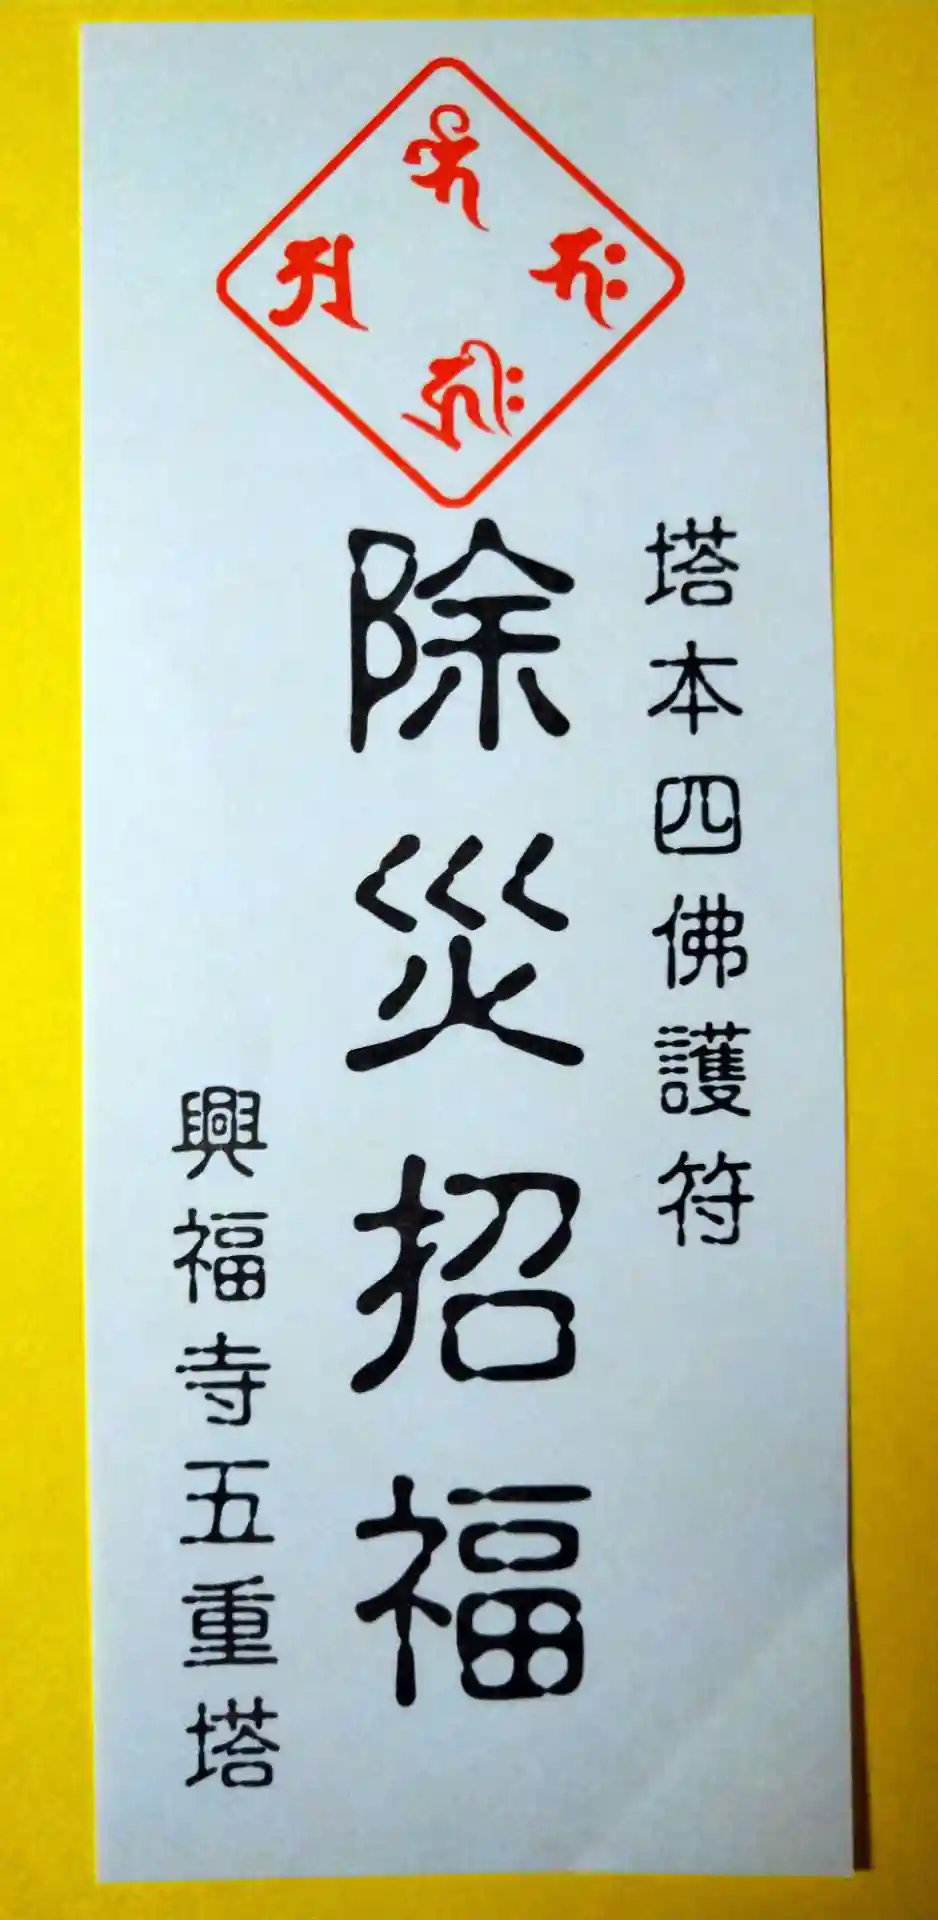 塔本四佛護符
除災招福
興福寺五重塔